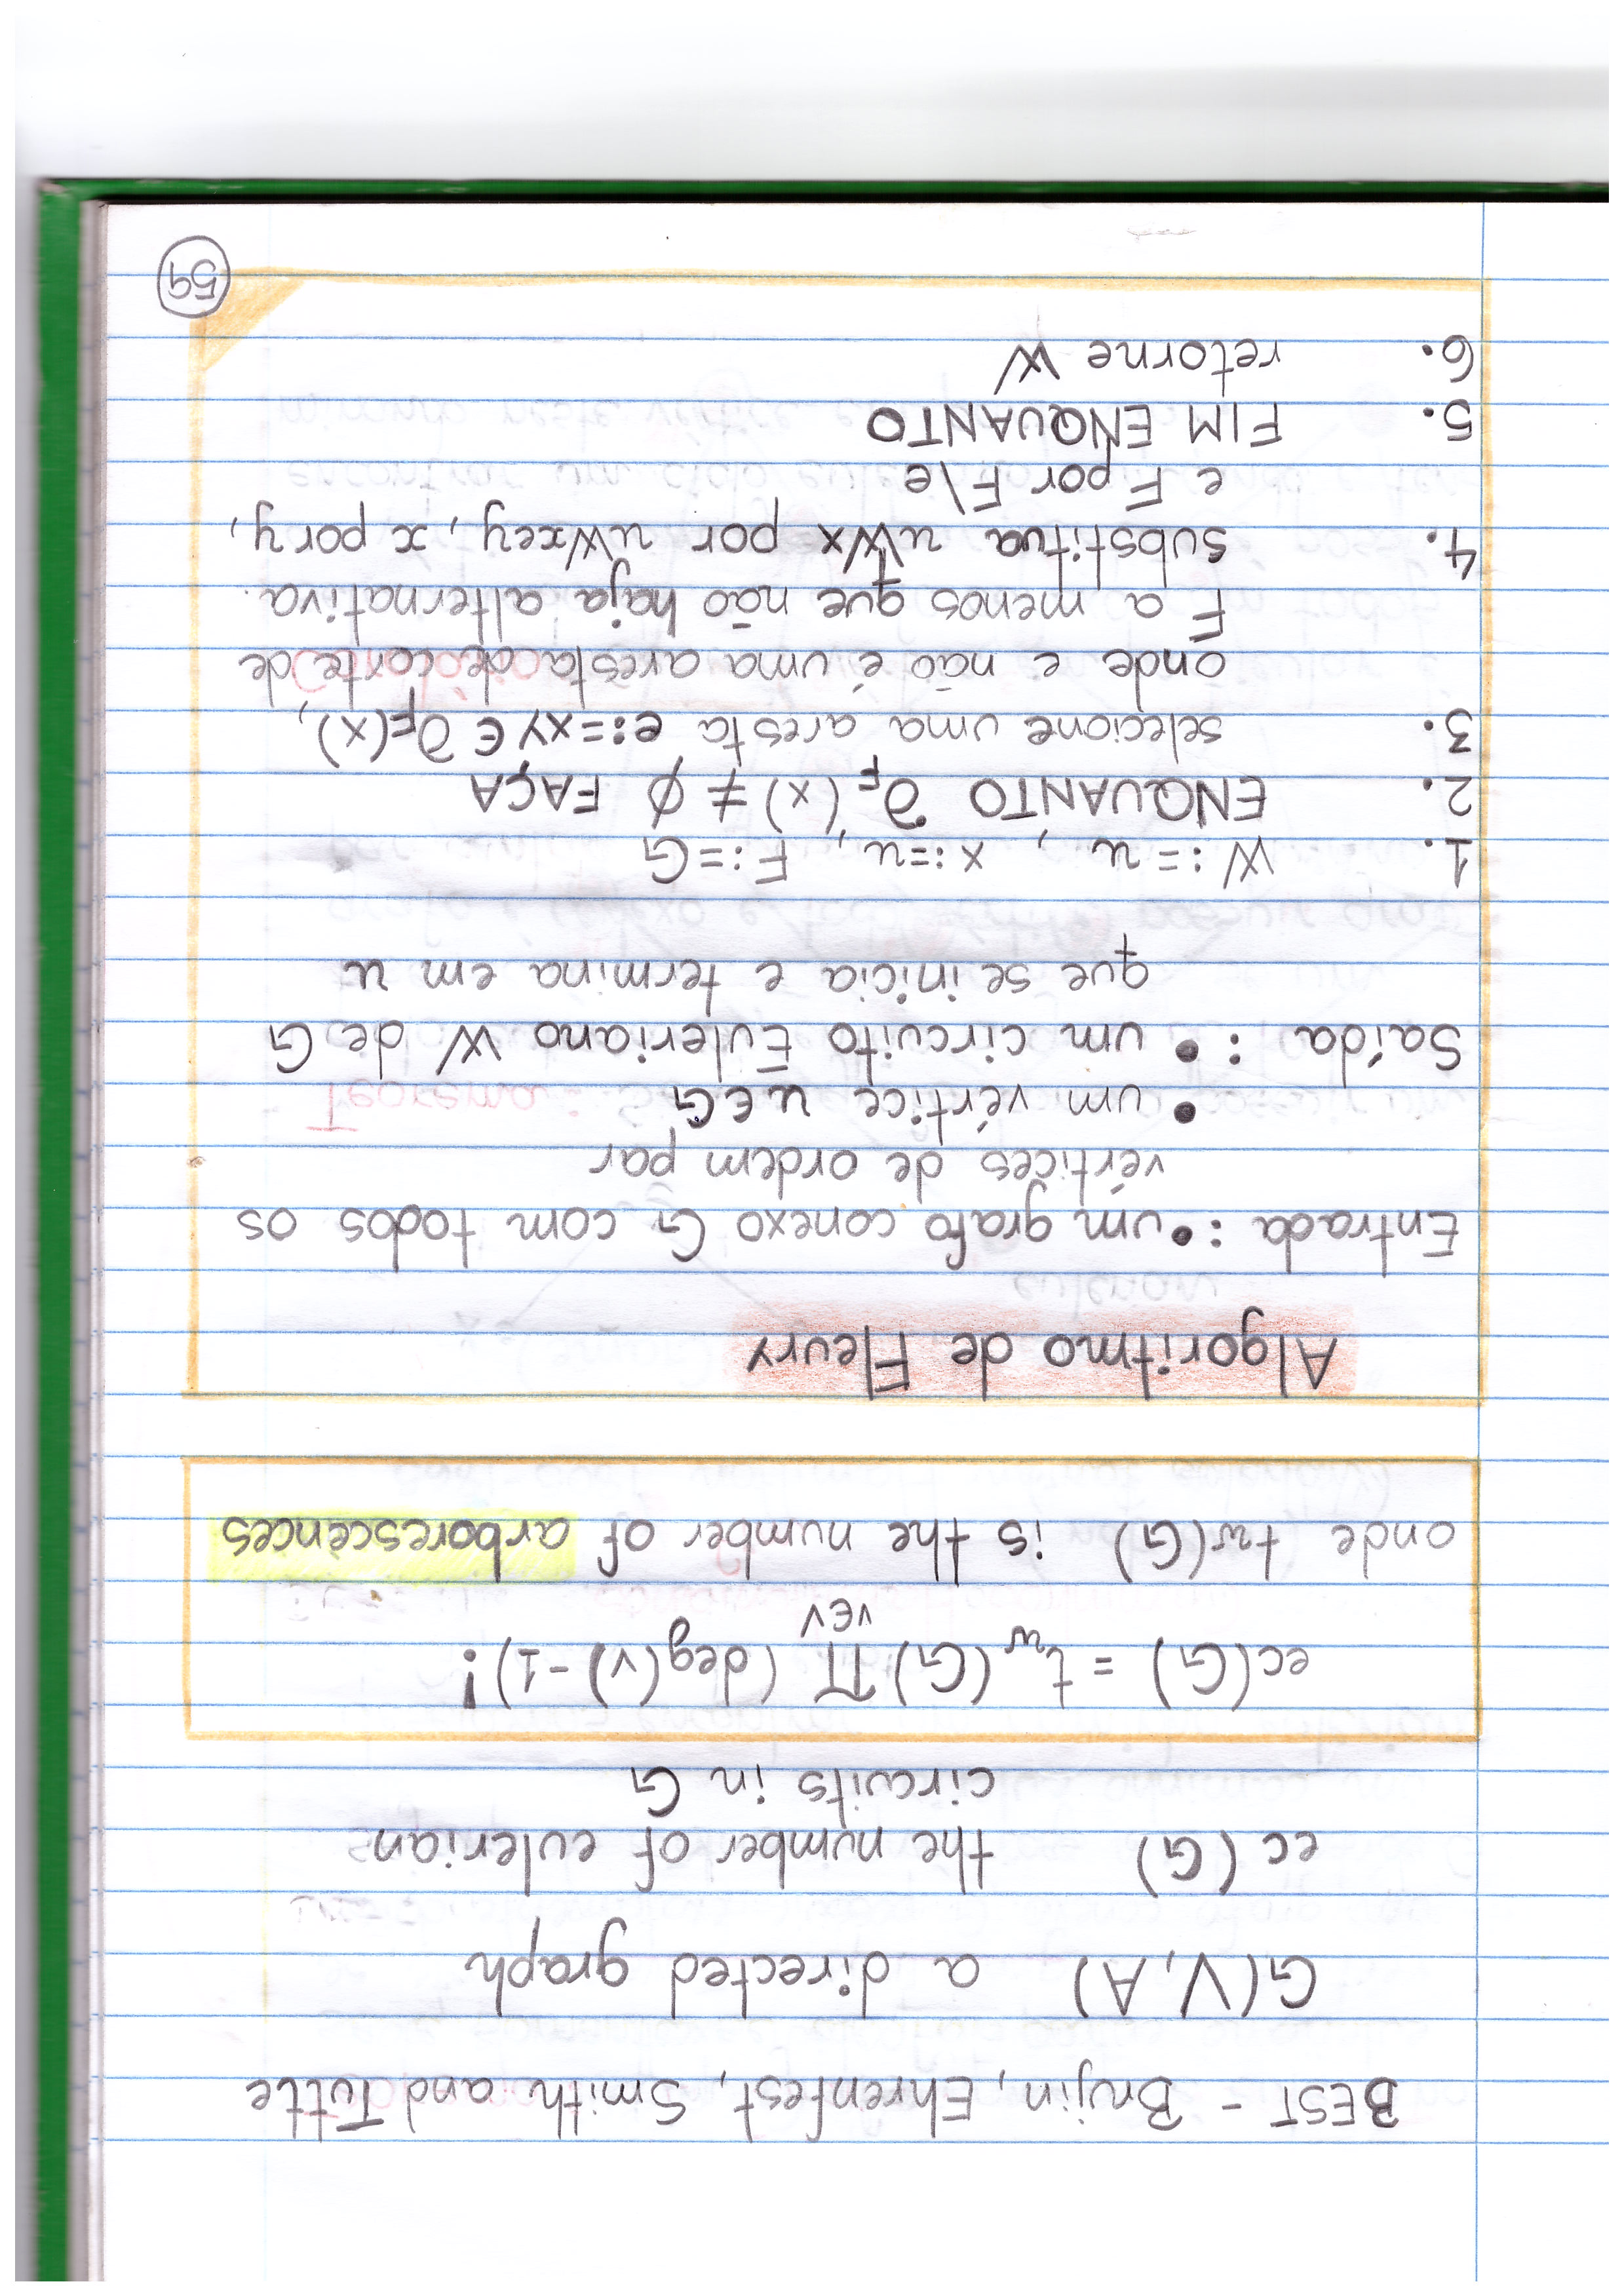 BEST - Brujin, Ehrenfest, Smith and Tutte
G(V,A) a directed graph
ec(G) the number of eulerian
circuits in G
ec(G) = t_w(G) ∏ (deg(v) - 1)!
v∈V
onde tw(G) is the number of arborescences
Algoritmo de Fleury
Entrada : • um grafo conexo G com todos os
vértices de ordem par
• um vértice u∈G
Saída : • um circuito Euleriano W de G
que se inicia e termina em u
1. W := u , x := u, F := G
2. ENQUANTO ∂_F(x) ≠ ∅ FAÇA
3. selecione uma aresta e:=xy ∈ ∂_F(x),
onde e não é uma aresta de corte de
F a menos que não haja alternativa.
4. substitua uWx por uWxey, x por y,
e F por F\e
5. FIM ENQUANTO
6. retorne W
59